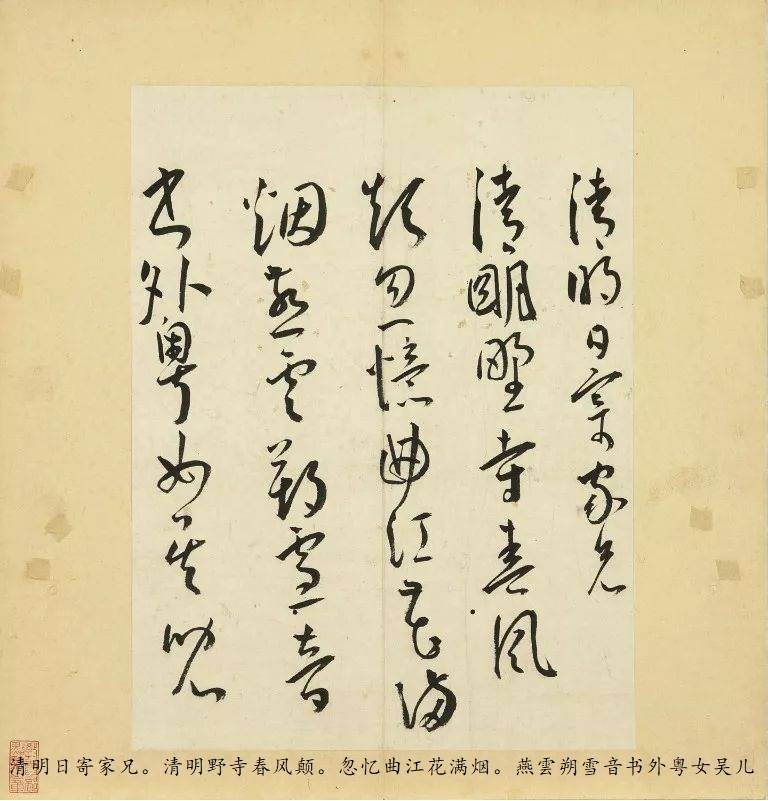 清明日寄家兄
清明野寺春風
顛忽憶曲江花滿
烟燕雲朔雪音
书外粤女吴兒
清明日寄家兄。清明野寺春风颠。忽忆曲江花满烟。燕雲朔雪音书外粤女吴儿